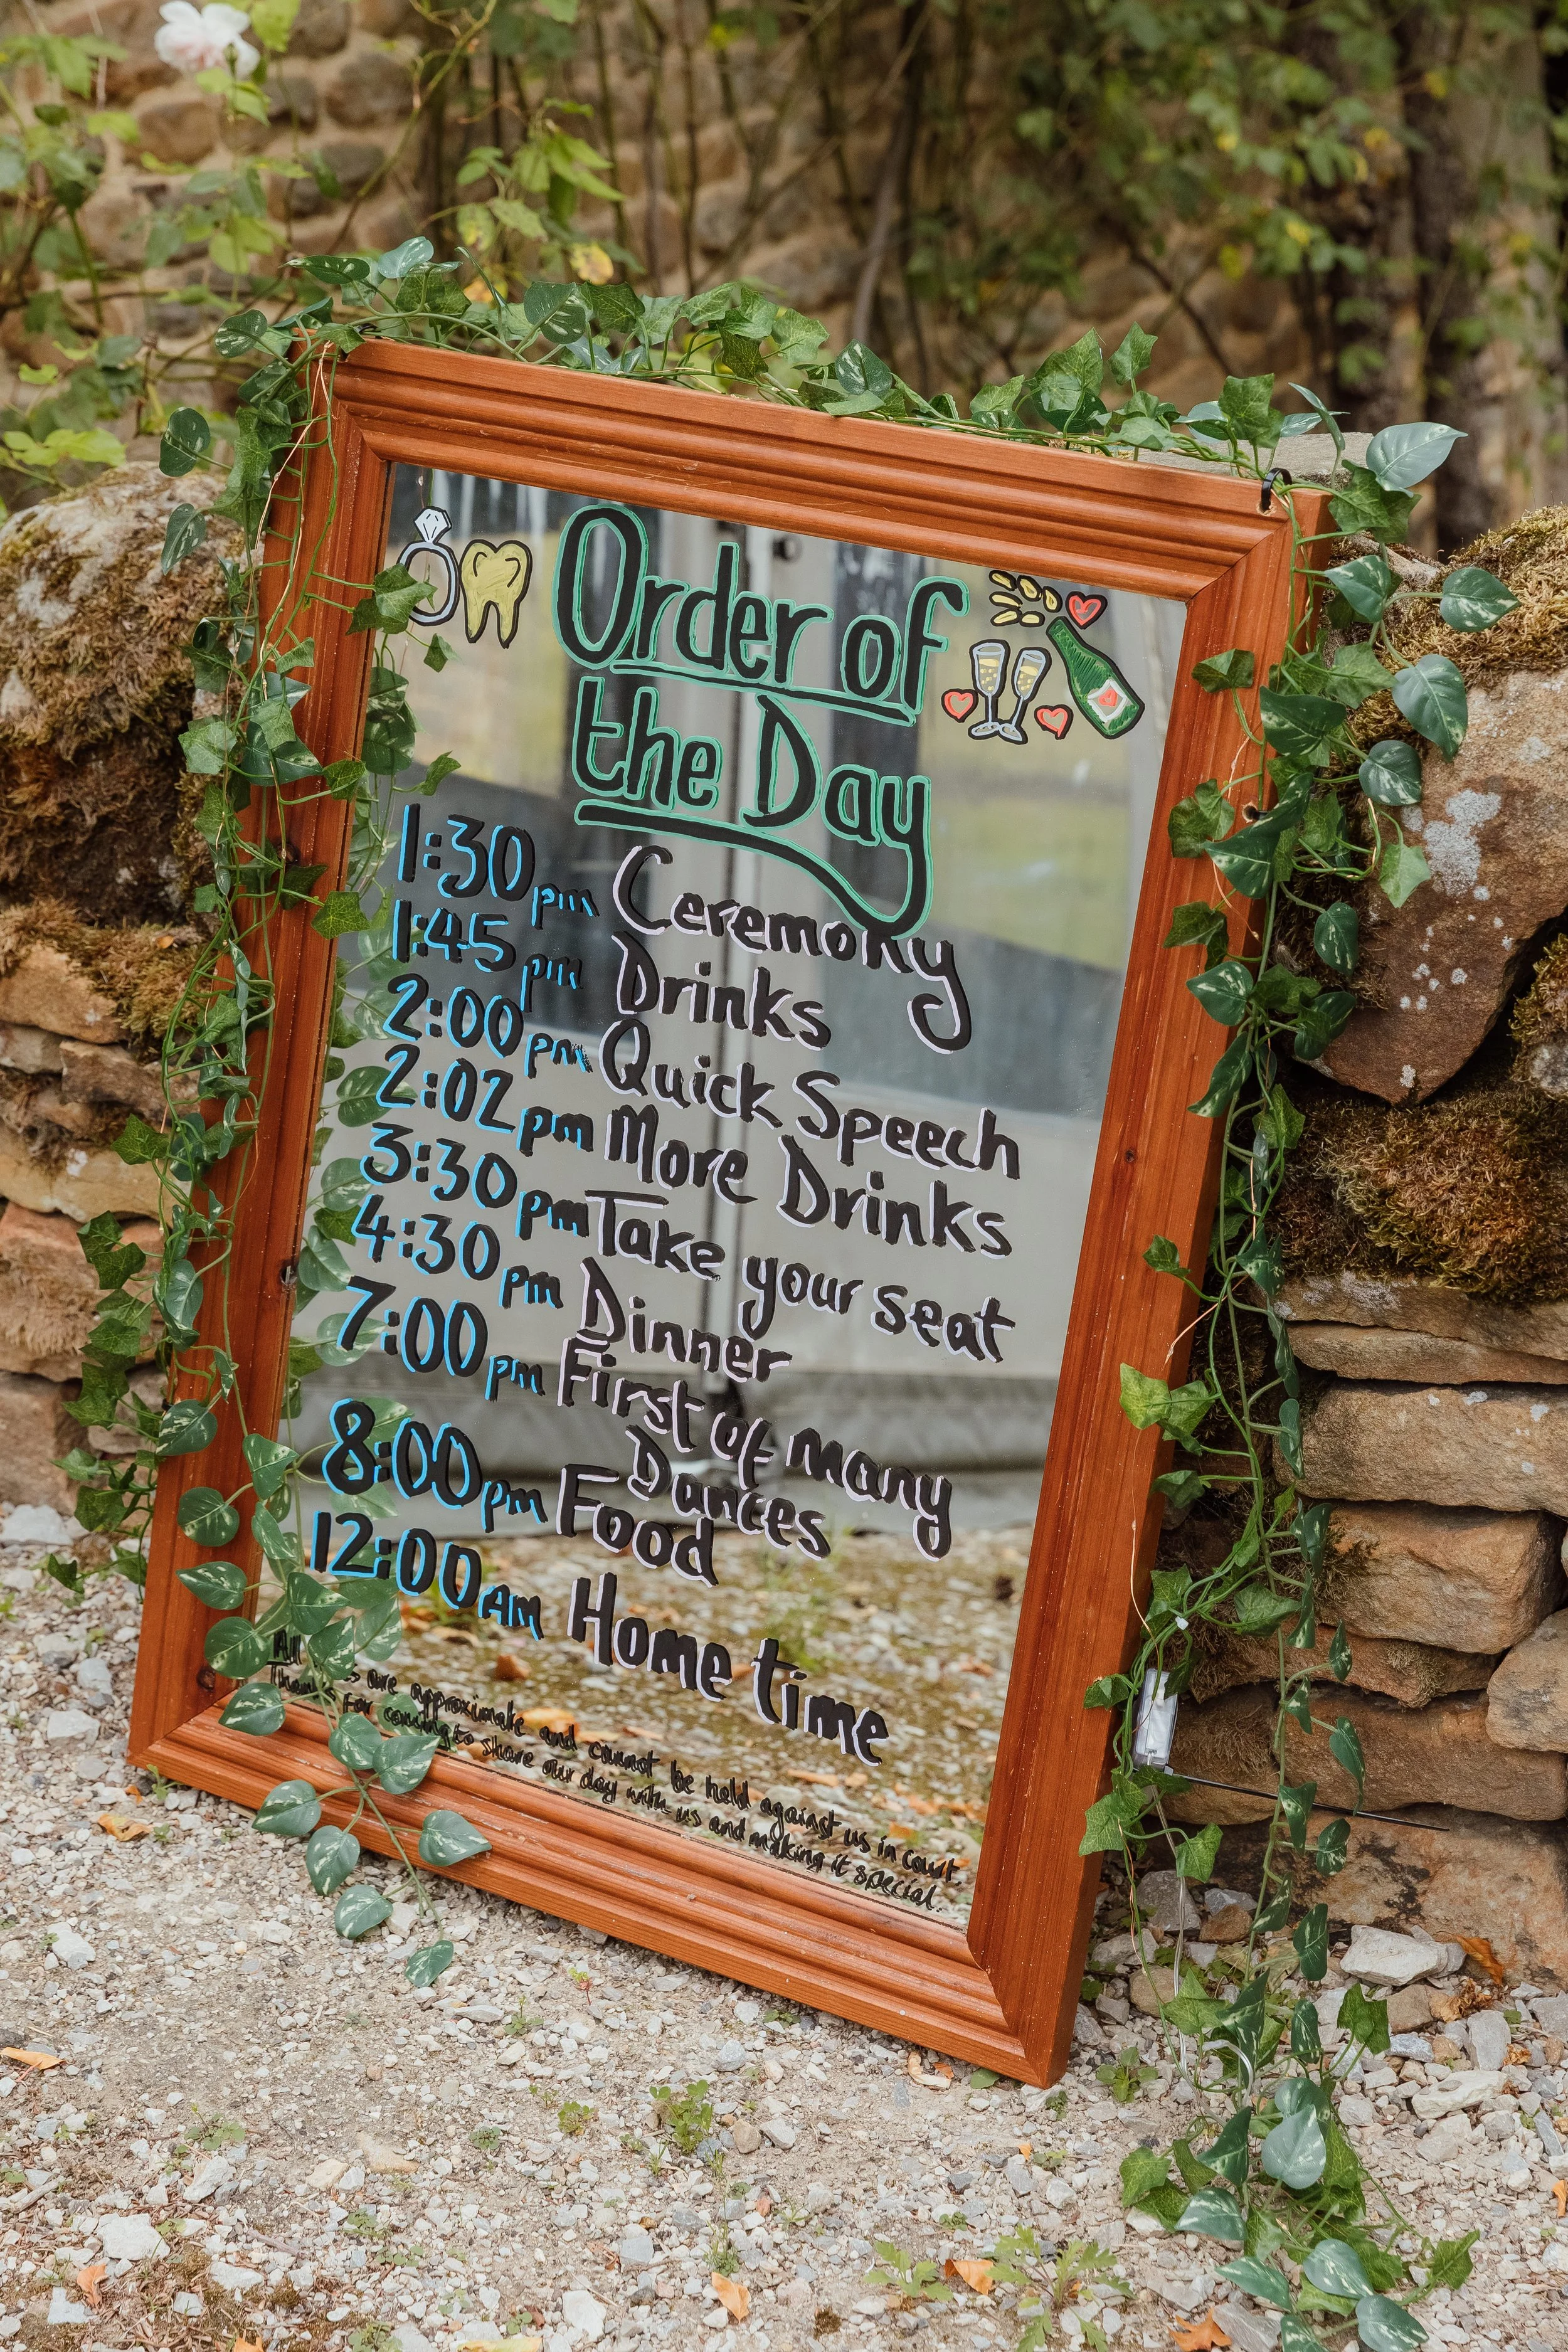 Order of
the Day
1:30pm Ceremony
1:45pm Drinks
2:00pm Quick Speech
2:02pm More Drinks
3:30pm Take your seat
4:30pm Dinner
7:00pm First of many
Dances
8:00pm Food
12:00AM Home time
All are approximate and cannot be held against us in court.
for coming to share our day with us and making it special.